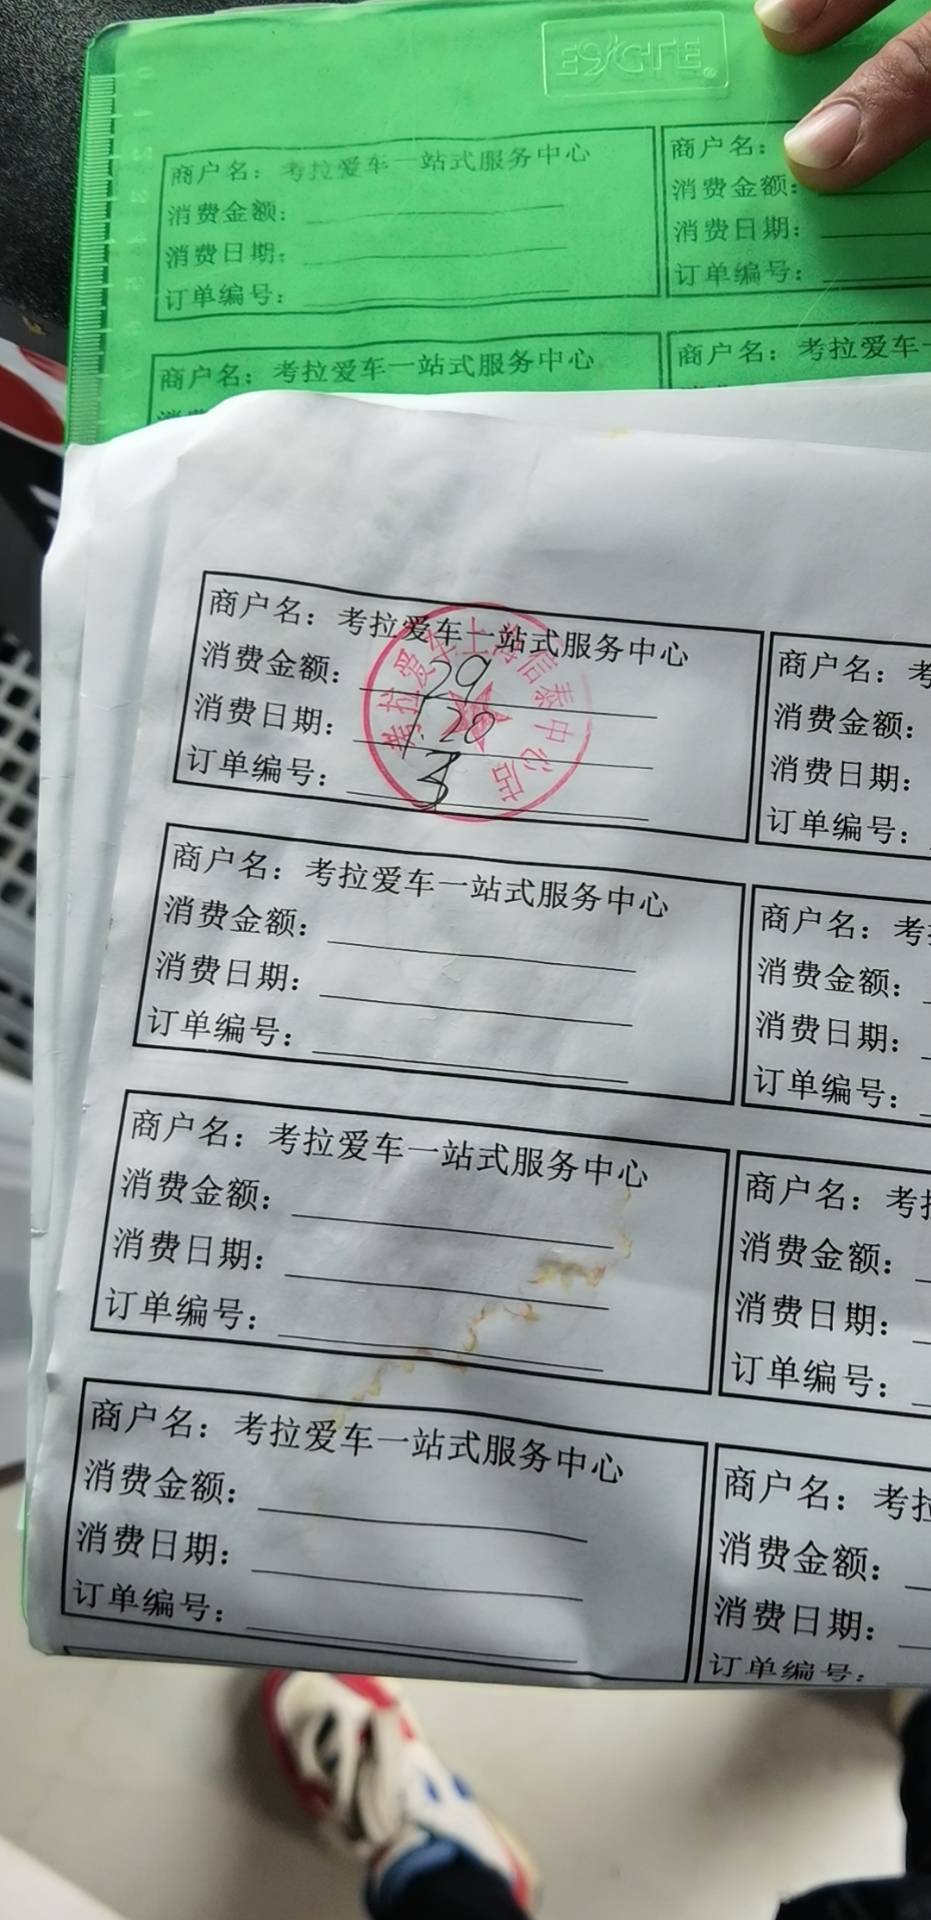 EAGLE
商户名：考拉爱车一站式服务中心
消费金额：
消费日期：
订单编号：
商户名：
消费金额：
消费日期：
订单编号：
商户名：考拉爱车一站式服务中心
商户名：考拉爱车一
商户名：考拉爱车一站式服务中心
消费金额：29
消费日期：1.20
订单编号：3
考拉爱车上海信泰中心店
商户名：考
消费金额：
消费日期：
订单编号：
商户名：考拉爱车一站式服务中心
消费金额：
消费日期：
订单编号：
商户名：考
消费金额：
消费日期：
订单编号：
商户名：考拉爱车一站式服务中心
消费金额：
消费日期：
订单编号：
商户名：考拉
消费金额：
消费日期：
订单编号：
商户名：考拉爱车一站式服务中心
消费金额：
消费日期：
订单编号：
商户名：考拉
消费金额：
消费日期：
订单编号：